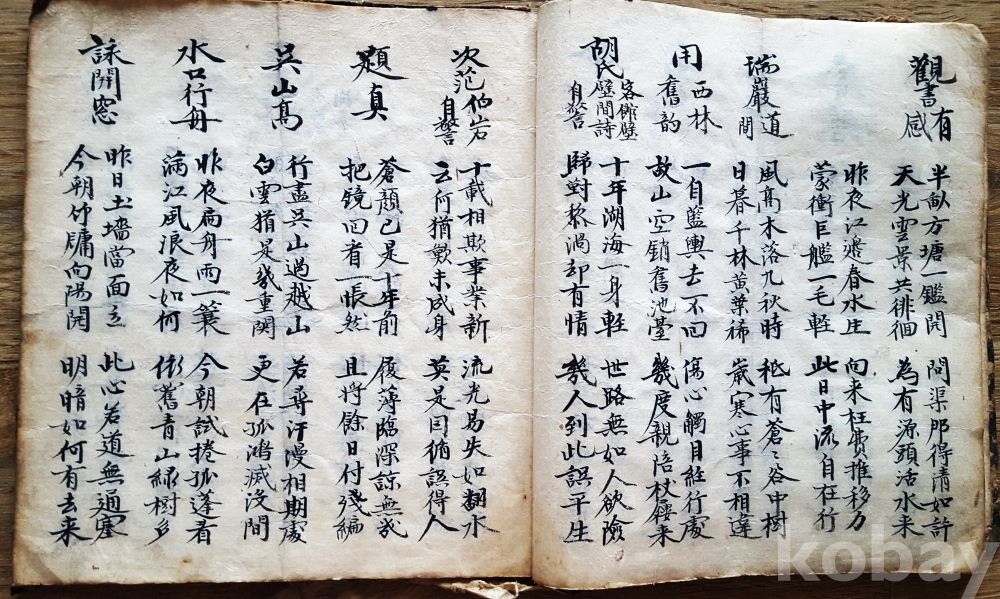 觀書有感
半畝方塘一鑑開
天光雲景共徘徊
問渠那得清如許
為有源頭活水來
昨夜江邊春水庄
蒙衝巨艦一毛輕
向來枉費推移力
此日中流自在行
瑞巖道間
風高木落九秋時
日暮千林黃葉稀
秪有蒼蒼谷中樹
歲寒心事不相違
用西林舊韵
一自籃輿去不回
故山空銷舊池臺
傷心觸目經行處
幾度親陪杖屨來
胡氏客館壁壁間詩自警
十年湖海一身輕
歸對黎渦却有情
世路無如人欲險
幾人到此誤平生
次范伯岩自警
十載相欺事業新
云何猶歎未成身
流光易失如翻水
莫是因循誤得人
題真
蒼顏已是十年前
把镜回看一悵然
履薄臨深諒無幾
且將餘日付殘編
吳山高
行盡吳山過越山
白雲猶是幾重関
若尋汗漫相期處
更在孤鴻滅沒間
水口行舟
昨夜扁舟雨一簑
滿江風浪夜如何
今朝試捲孤蓬看
依舊青山綠樹多
詠開窓
昨日土墻當面立
今朝竹牖向陽開
此心若道無通塞
明暗如何有去来
kobay